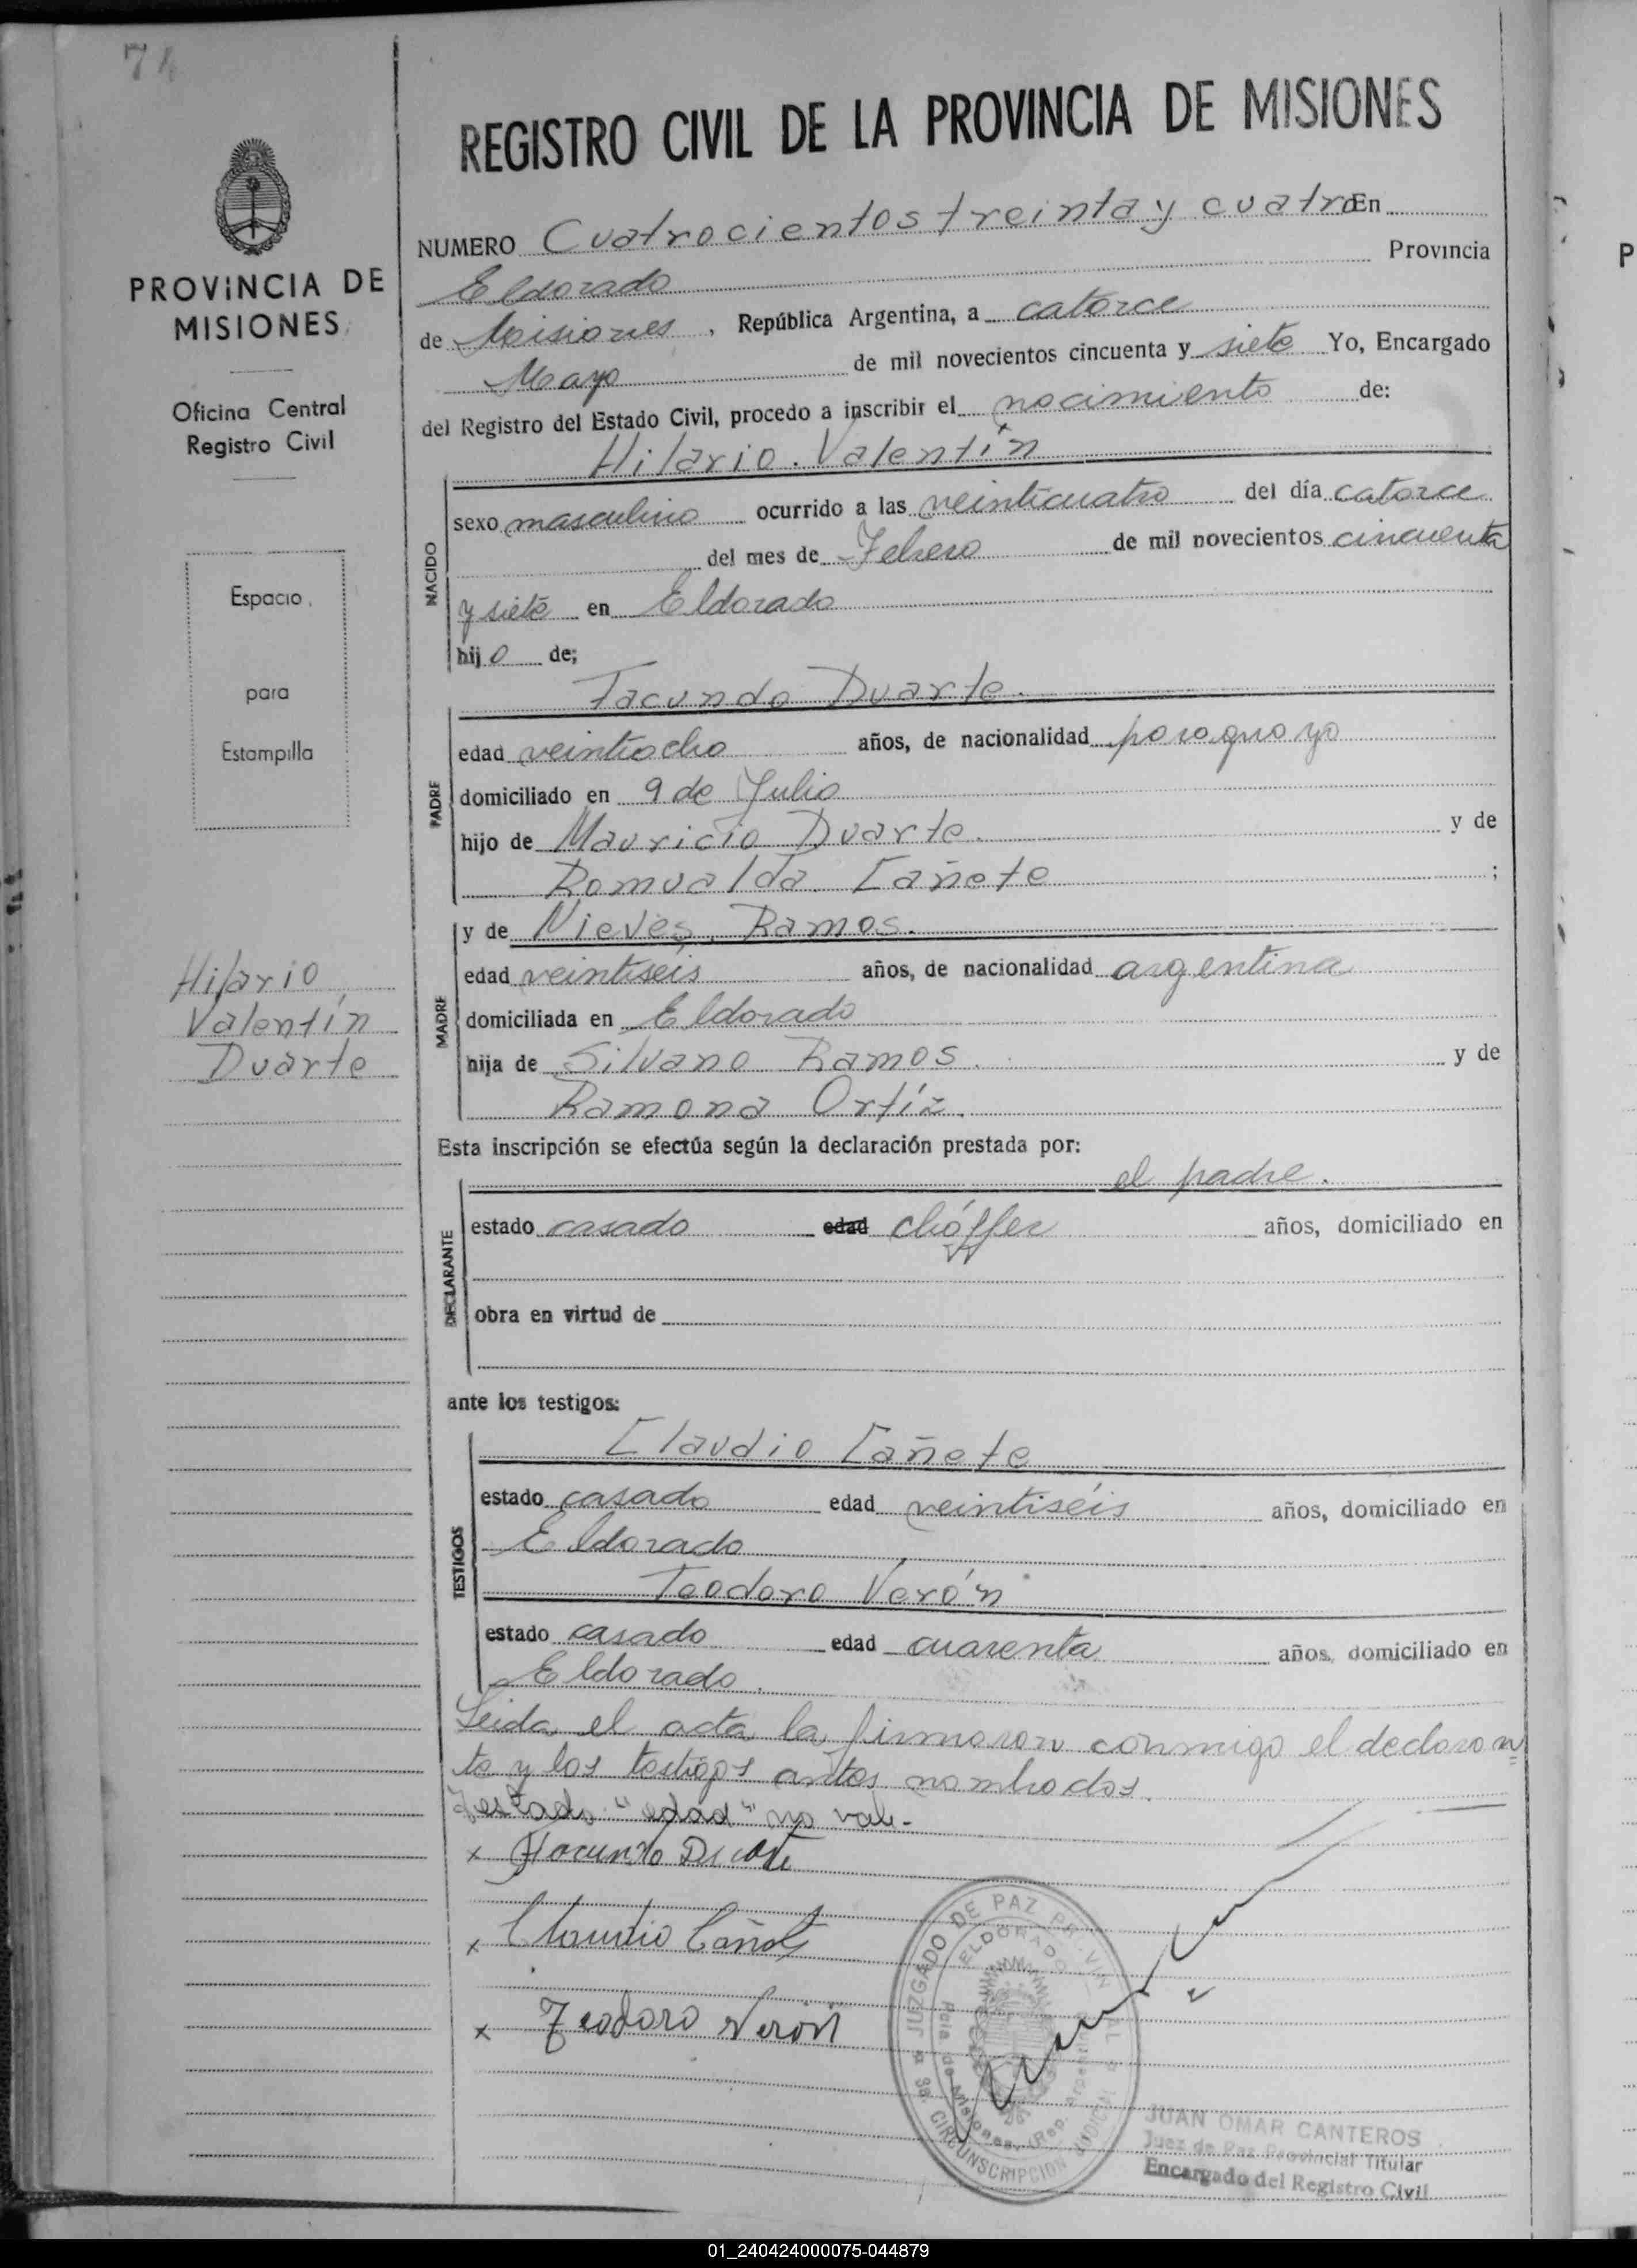 74
REGISTRO CIVIL DE LA PROVINCIA DE MISIONES
PROVINCIA DE
MISIONES
Oficina Central
Registro Civil
Espacio
para
Estampilla
Hilario
Valentín
Duarte
NUMERO Cuatrocientos treinta y cuatro En
Eldorado Provincia
de Misiones, República Argentina, a catorce
Mayo de mil novecientos cincuenta y siete Yo, Encargado
del Registro del Estado Civil, procedo a inscribir el nacimiento de:
Hilario Valentín
NACIDO
sexo masculino ocurrido a las veinticuatro del día catorce
del mes de Febrero de mil novecientos cincuenta
y siete en Eldorado
hijo de;
Facundo Duarte.
PADRE
edad veintiocho años, de nacionalidad paraguayo
domiciliado en 9 de Julio
hijo de Mauricio Duarte. y de
Romualda Cañete ;
MADRE
y de Nieves Ramos.
edad veintiseis años, de nacionalidad argentina
domiciliada en Eldorado
hija de Silvano Ramos. y de
Ramona Ortíz.
Esta inscripción se efectúa según la declaración prestada por:
el padre.
DECLARANTE
estado casado edad chóffer años, domiciliado en
obra en virtud de
ante los testigos:
Claudio Cañete
TESTIGOS
estado casado edad veintiséis años, domiciliado en
Eldorado
Teodoro Verón
estado casado edad cuarenta años, domiciliado en
Eldorado.
Leida el acta la firmaron conmigo el declaran
te y los testigos antes nombrados.
Testado "edad" no vale-
x Facundo Duarte
x Claudio Cañete
x Teodoro Verón
JUZGADO DE PAZ PROVINCIAL
ELDORADO
Pcia. de Misiones (Rep. Argentina)
CIRCUNSCRIPCION JUDICIAL
JUAN OMAR CANTEROS
Juez de Paz Provincial Titular
Encargado del Registro Civil
01_240424000075-044879